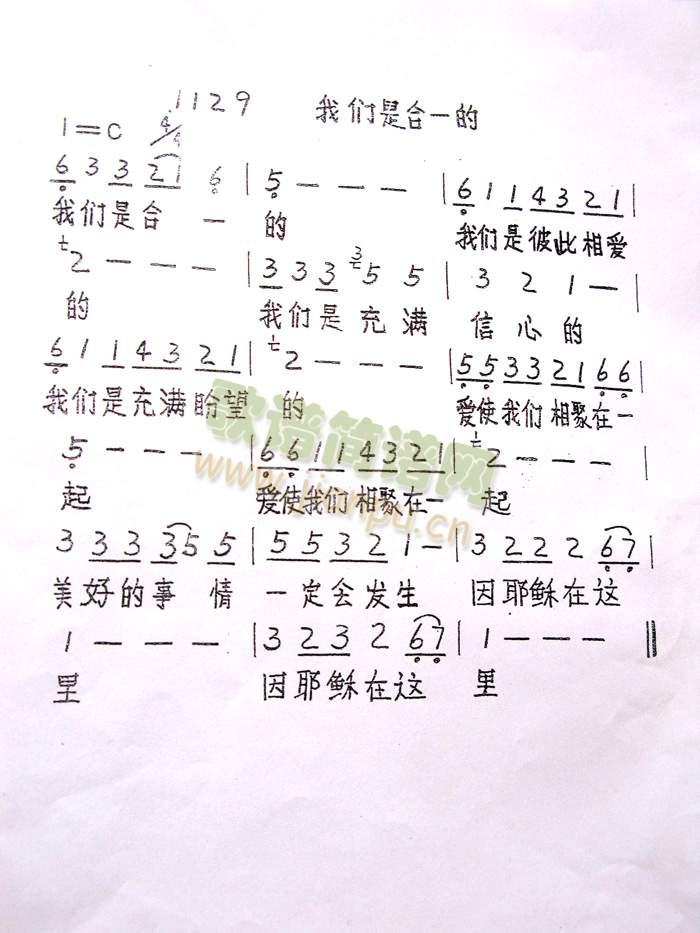 1129 我们是合一的
1=C 4/4
6 3 3 21 6 | 5 — — — | 6 1 1 4 3 2 1 |
我们是合一 的 我们是彼此相爱
2 — — — | 3 3 3 5 5 | 3 2 1 — |
的 我们是充满 信心的
6 1 1 4 3 2 1 | 2 — — — | 5 5 3 3 2 1 6 6 |
我们是充满盼望 的 爱使我们相聚在一
5 — — — | 6 6 1 1 4 3 2 1 | 2 — — — |
起 爱使我们相聚在一 起
3 3 3 3 5 5 | 5 5 3 2 1 — | 3 2 2 2 6 7 |
美好的事情 一定会发生 因耶稣在这
1 — — — | 3 2 3 2 6 7 | 1 — — — ‖
里 因耶稣在这 里
歌谱简谱网
www.jianpu.cn